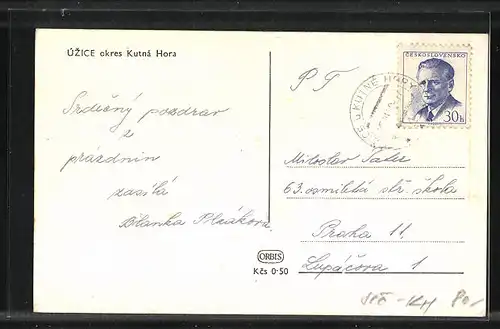 ÚŽICE okres Kutná Hora
Srdečný pozdrav
z
prázdnin
zasílá
Blanka
ORBIS
Kčs 0·50
P T
ČESKOSLOVENSKO
30h
U KUTNÉ HORY
Miloslav
63. osmiletá stř. škola
Praha 11
Lupáčova 1
80,-